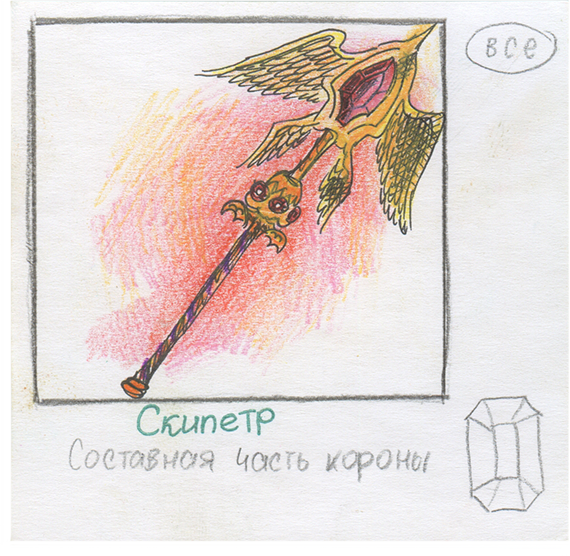 все
Скипетр
Составная часть короны